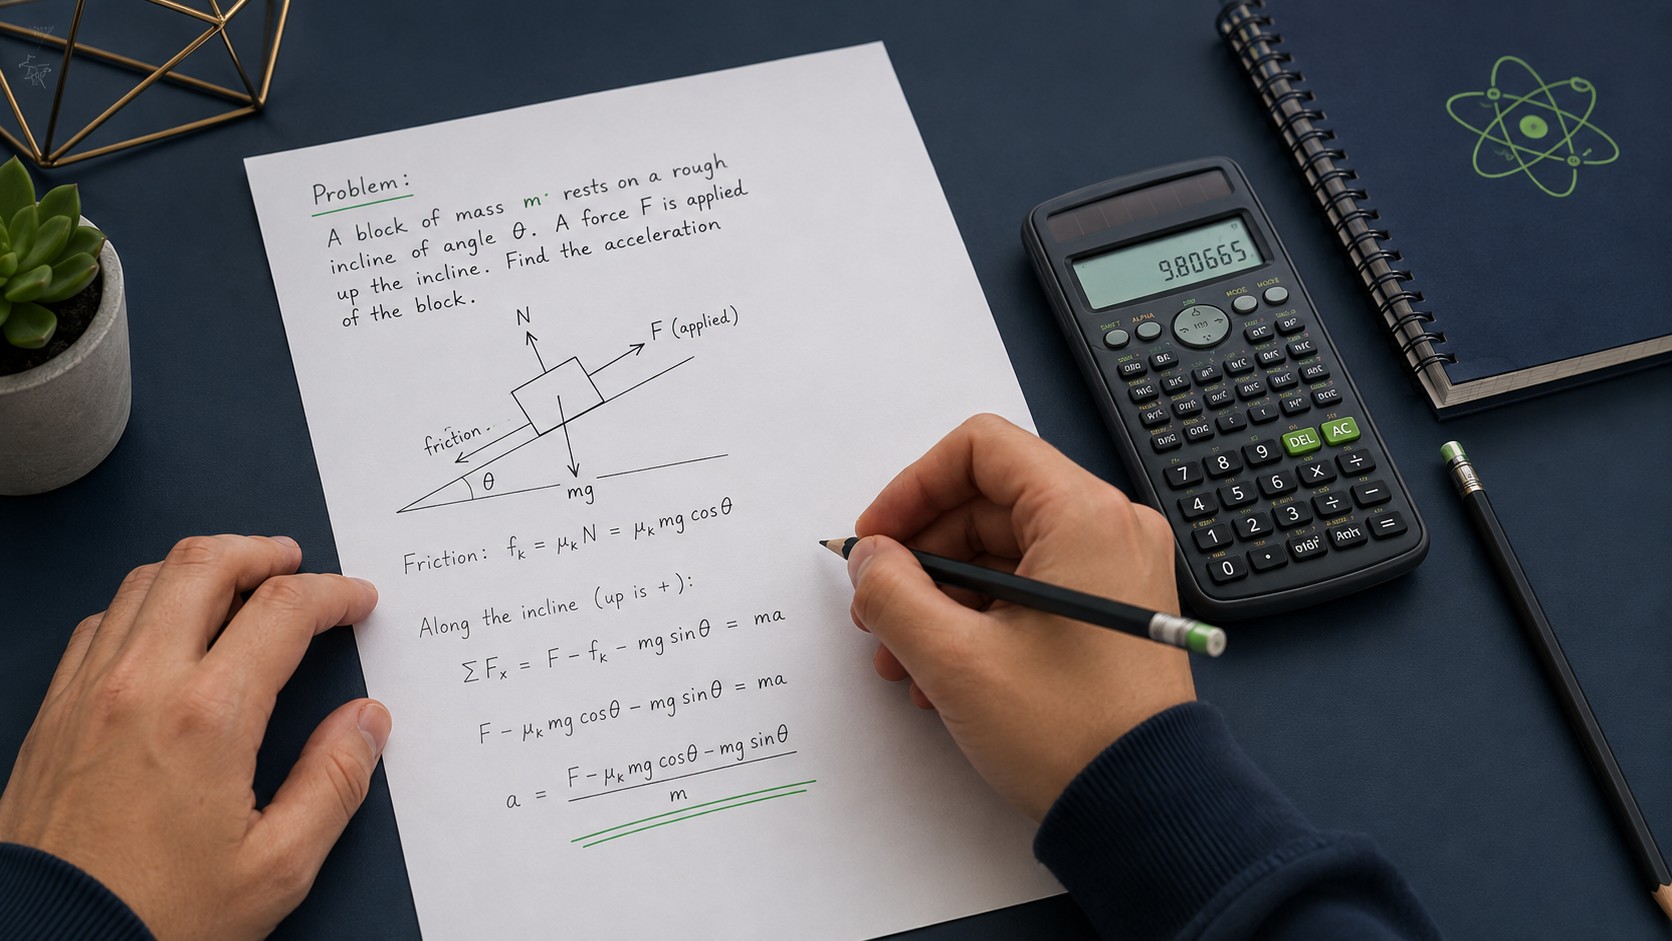 Problem:
A block of mass m rests on a rough
incline of angle θ. A force F is applied
up the incline. Find the acceleration
of the block.
N
F (applied)
friction
θ
mg
Friction: fₖ = μₖN = μₖ mg cosθ
Along the incline (up is +):
∑Fₓ = F − fₖ − mg sinθ = ma
F − μₖ mg cosθ − mg sinθ = ma
a = F − μₖ mg cosθ − mg sinθ
m
9.80665
SHIFT ALPHA MODE
DEL AC
7 8 9 × ÷
4 5 6 ÷ −
1 2 3 =
0 .